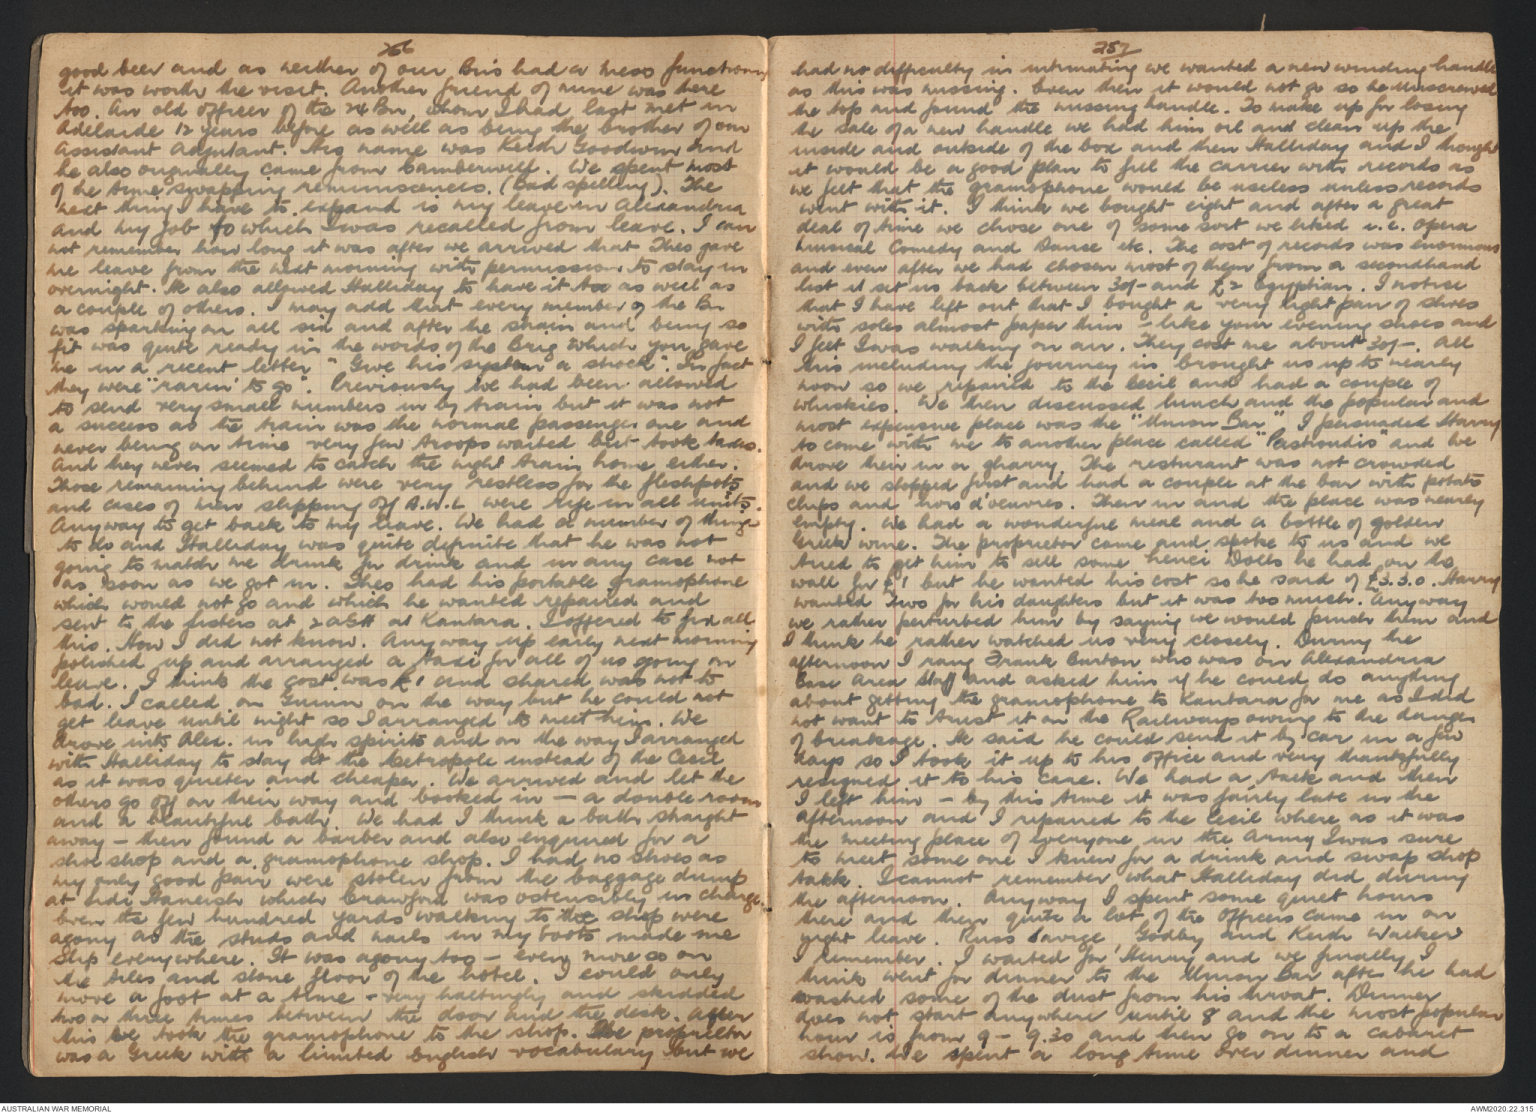 256
good beer and as neither of our Bns had a mess functioning
it was worth the visit. Another friend of mine was there
too. An old officer of the 24 Bn, whom I had last met in
Adelaide 12 years before as well as being the brother of our
Assistant Adjutant. His name was Keith Goodwin and
he also originally came from Camberwell. We spent most
of the time swapping reminiscences. (Bad spelling). The
next thing I have to expand is my leave in Alexandria
and my job to which I was recalled from leave. I can
not remember how long it was after we arrived that Theo gave
me leave from the next morning with permission to stay in
overnight. He also allowed Halliday to have it too as well as
a couple of others. I may add that every member of the Bn
was sparking on all six and after the strain and being so
fit was quite ready in the words of the Brig which you gave
me in a recent letter "Give his system a shock". In fact
they were "rarin' to go". Previously we had been allowed
to send very small numbers in by train but it was not
a success as the train was the normal passenger one and
never being on time very few troops waited but took taxis.
And they never seemed to catch the right train home either.
Those remaining behind were very restless for the fleshpots
and cases of men slipping off A.W.L. were rife in all units.
Anyway to get back to my leave. We had a number of things
to do and Halliday was quite definite that he was not
going to match me drink for drink and in any case not
as soon as we got in. Theo had his portable gramophone
which would not go and which he wanted repaired and
sent to the sisters at 2 AGH at Kantara. I offered to fix all
this. How I did not know. Anyway up early next morning
polished up and arranged a taxi for all of us going on
leave. I think the cost was £1 and shared was not to
bad. I called on Gunn on the way but he could not
get leave until night so I arranged to meet him. We
drove into Alex. in high spirits and on the way I arranged
with Halliday to stay at the Metropole instead of the Cecil
as it was quieter and cheaper. We arrived and let the
others go off on their way and booked in – a double room
and a beautiful bath. We had I think a bath straight
away – then found a barber and also enquired for a
shoe shop and a gramophone shop. I had no shoes as
my only good pair were stolen from the baggage dump
at Sidi Haneish which Crawford was ostensibly in charge.
Even the few hundred yards walking to the shop were
agony as the studs and nails in my boots made me
slip everywhere. It was agony too – even more so on
the tiles and stone floor of the hotel. I could only
move a foot at a time – very haltingly and skidded
two or three times between the door and the desk. After
this we took the gramophone to the shop. The proprietor
was a Greek with a limited English vocabulary but we
257
had no difficulty in intimating we wanted a new winding handle
as this was missing. Even then it would not go so he unscrewed
the top and found the missing handle. To make up for losing
the sale of a new handle we had him oil and clean up the
inside and outside of the box and then Halliday and I thought
it would be a good plan to fill the carrier with records as
we felt that the gramophone would be useless unless records
went with it. I think we bought eight and after a great
deal of time we chose one of some sort we liked i.e. opera
musical Comedy and Dance etc. The cost of records was enormous
and even after we had chosen most of them from a secondhand
list it set us back between 30/- and £2 Egyptian. I notice
that I have left out that I bought a very light pair of shoes
with soles almost paper thin – like your evening shoes and
I felt I was walking on air. They cost me about 30/-. All
this including the journey in brought us up to nearly
noon so we repaired to the Cecil and had a couple of
whiskies. We then discussed lunch and the popular and
most expensive place was the "Union Bar". I persuaded Harry
to come with me to another place called "Pastroudis" and we
drove their in a gharry. The resturant was not crowded
and we stopped first and had a couple at the bar with potato
chips and hors d'oeuvres. Then in and the place was nearly
empty. We had a wonderful meal and a bottle of golden
Greek wine. The proprietor came and spoke to us and we
tried to get him to sell some henci Dolls he had on the
wall for £1 but he wanted his cost so he said of £3.3.0. Harry
wanted two for his daughters but it was too much. Anyway
we rather perturbed him by saying we would pinch them and
I think he rather watched us very closely. During the
afternoon I rang Frank Burton who was on Alexandria
Base Area Staff and asked him if he could do anything
about getting the gramophone to Kantara for me as I did
not want to trust it on the Railways owing to the danger
of breakage. He said he could send it by car in a few
days so I took it up to his office and very thankfully
resigned it to his care. We had a talk and then
I left him – by this time it was fairly late in the
afternoon and I repaired to the Cecil where as it was
the meeting place of everyone in the Army I was sure
to meet some one I knew for a drink and swap shop
talk. I cannot remember what Halliday did during
the afternoon. Anyway I spent some quiet hours
there and then quite a lot of the officers came in on
night leave. Russ Savige, Godby and Keith Walker
I remember. I waited for Henry and we finally, I
think went for dinner to the Union Bar after he had
washed some of the dust from his throat. Dinner
does not start anywhere until 8 and the most popular
hour is from 9 - 9.30 and then go on to a cabaret
show. We spent a long time over dinner and
AUSTRALIAN WAR MEMORIAL
AWM2020.22.315